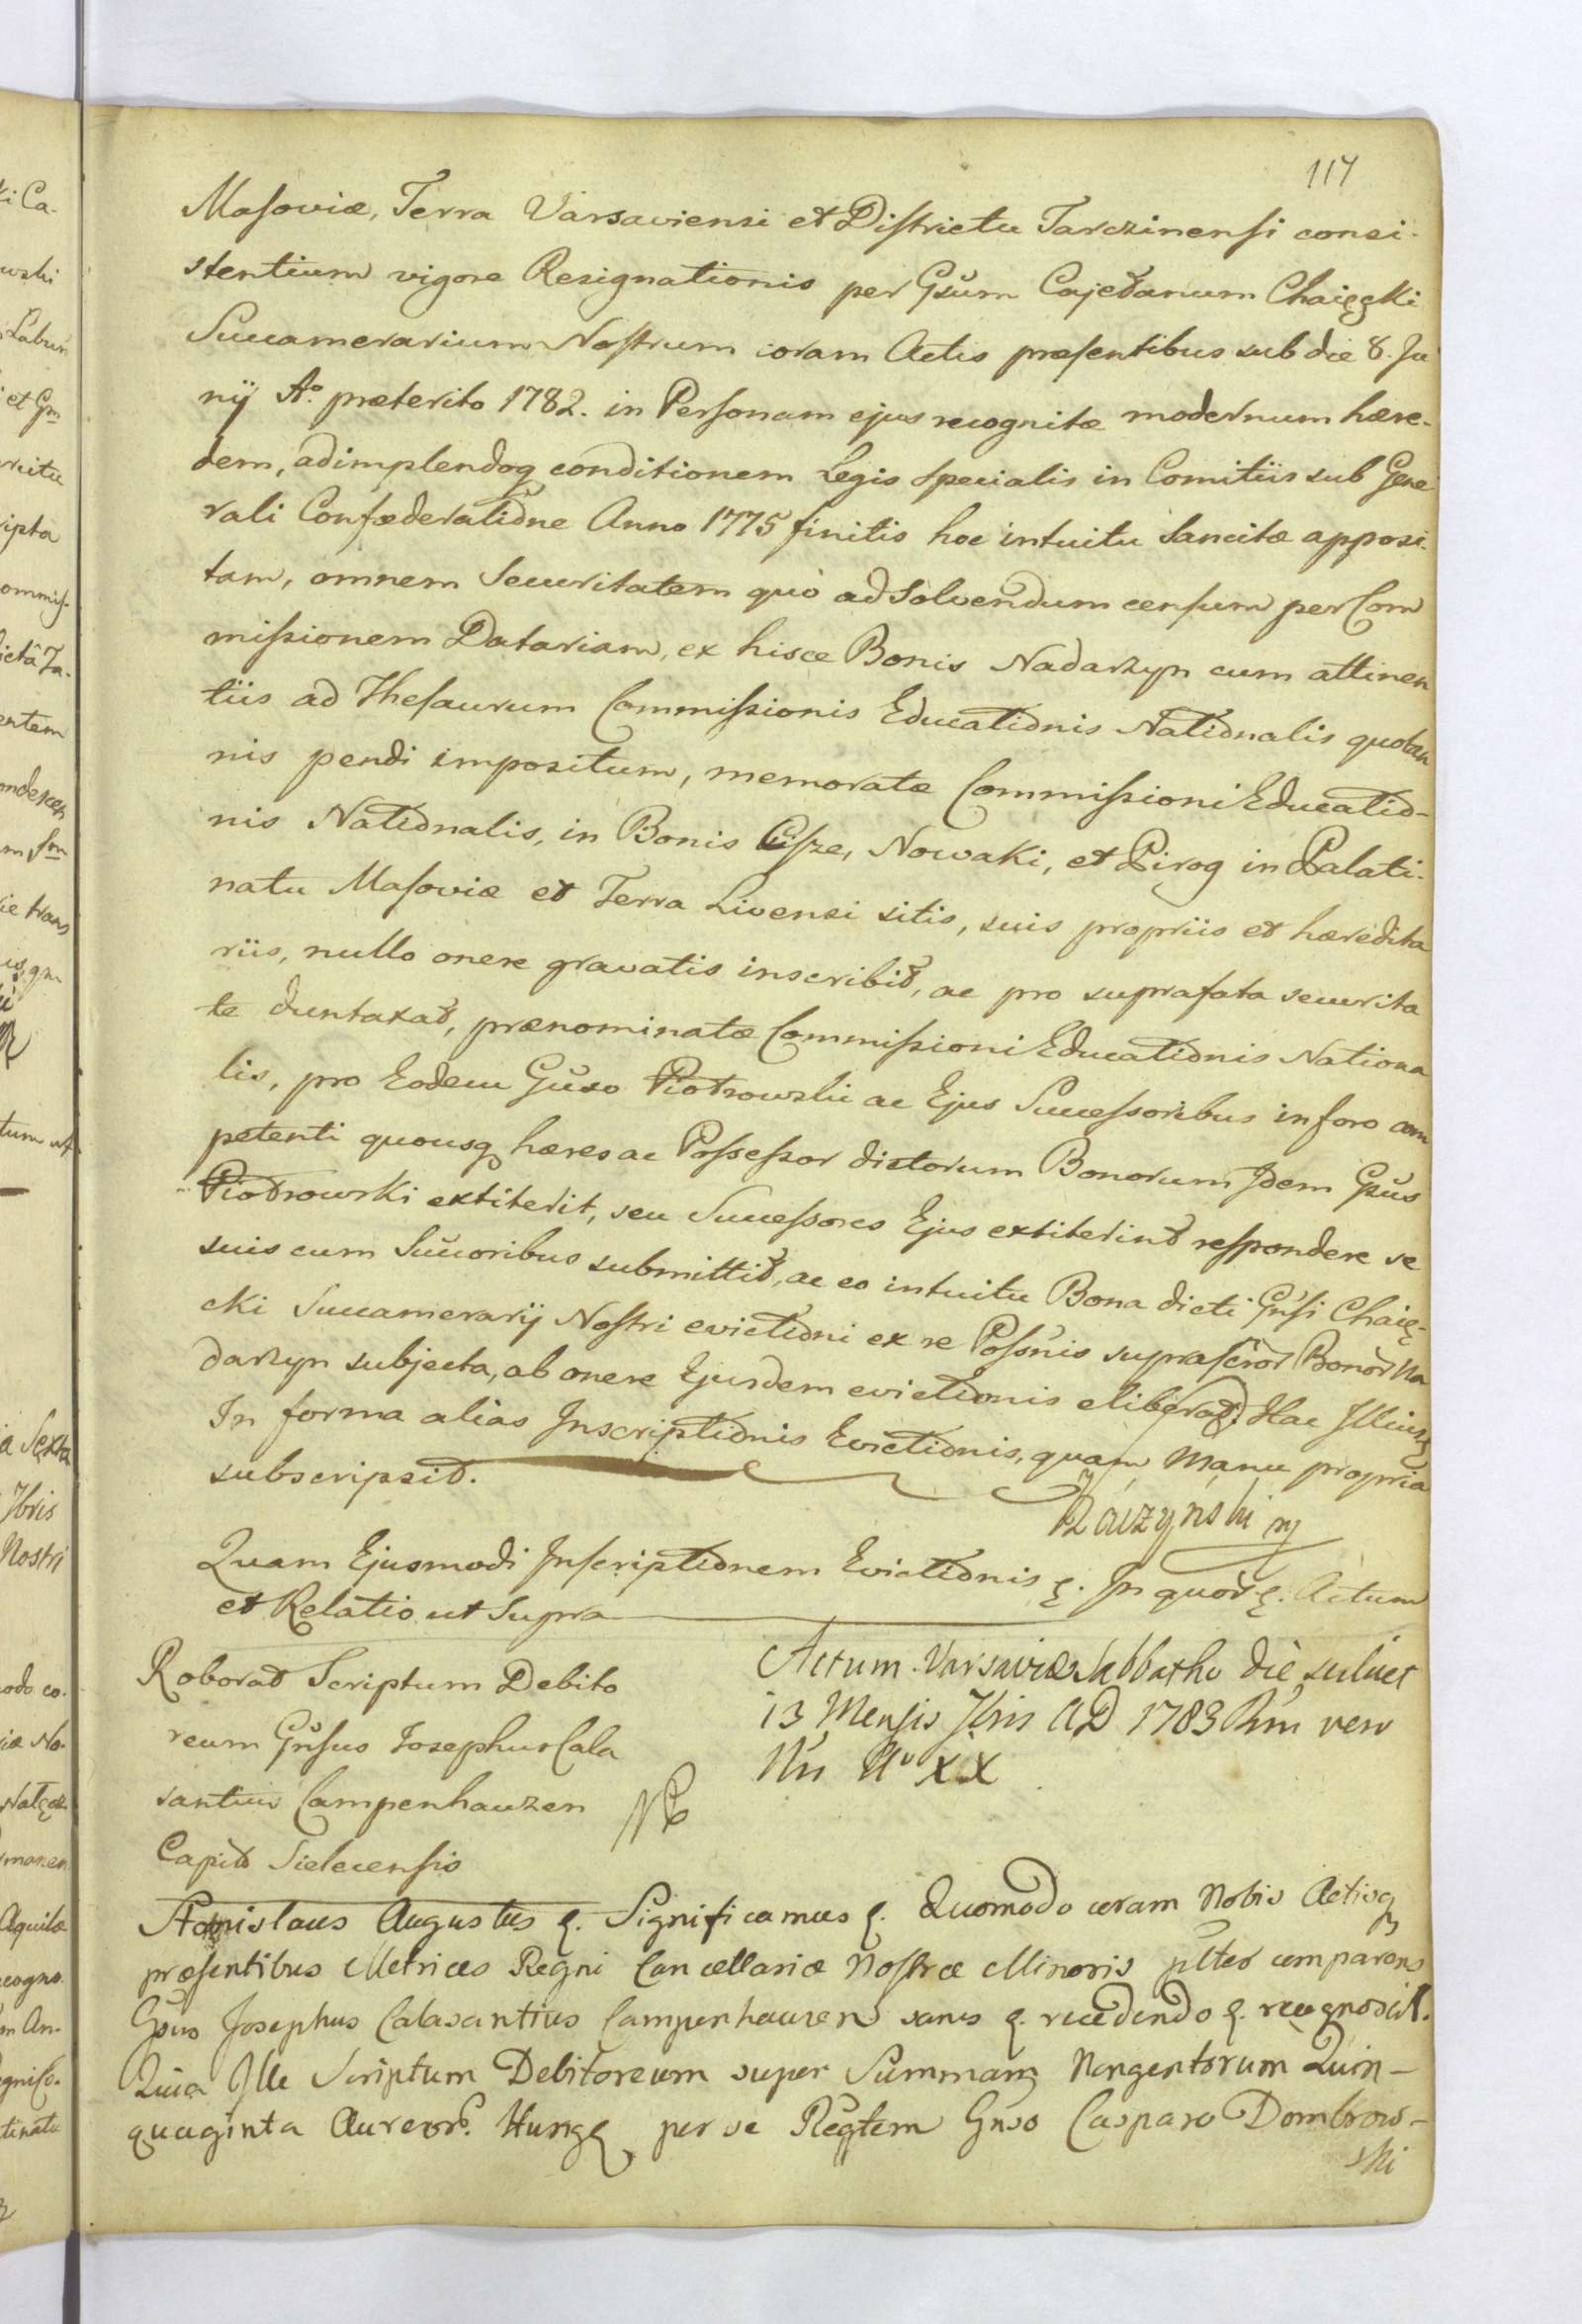 117
Masoviæ, Terra Varsaviensi et Districtu Tarczinensi consi-
stentium vigore Resignationis per Gsum Cajetanum Chaięcki
Succamerarium Nostrum coram Actis præsentibus sub die 8. Ju
nij Ao. præterito 1782. in Personam ejus recognitæ modernum hære-
dem, adimplendoq conditionem Legis specialis in Comitiis sub Gene
rali Confæderatione Anno 1775 finitis hoc intuitu Sancitæ apposi-
tam, omnem Securitatem quò ad Solvendum censum per Com
missionem Datariam, ex hisce Bonis Nadarzyn cum attinen
tiis ad Thesaurum Commissionis Educationis Nationalis quotan
nis pendi impositum, memoratæ Commissioni Educatio-
nis Nationalis, in Bonis Cisze, Nowaki, et Pirog in Palati-
natu Masoviæ et Terra Livensi sitis, suis propriis et hæredita
riis, nullo onere gravatis inscribit, ac pro suprafata securita
te duntaxat, prænominatæ Commissioni Educationis Nationa
lis, pro Eodem Gnso Piotrowski ac Ejus Successoribus in foro com
petenti quousq hæres ac Possessor dictorum Bonorum Idem Gsus
Piotrowski extiterit, seu Successores Ejus extiterint respondere se
suis cum Succoribus submittit, ac eo intuitu Bona dicti Gnsi Chaię-
cki Succamerarij Nostri evictioni ex re Possnis suprascror Bonor Na
darzyn subjecta, ab onere Ejusdem evictionis eliberat. Hac Illius
In forma alias Inscriptionis Evictionis, quam Manu propria
subscripsit.
Raczyński mp
Quam Ejusmodi Inscriptionem Evictionis &. In quor &. Actum
et Relatio ut Supra
Roborat Scriptum Debito
reum Gnsus Josephus Cala
santius Campenhauzen
Capit Sielecensis
Actum Varsaviæ Sabbatho die scilicet
13 Mensis 7bris AD 1783 Rni vero
Nri Ao XX
Stanislaus Augustus &. Significamus &. Quomodo coram Nobis Actisq
præsentibus Metrices Regni Cancellariæ Nostræ Minoris plter comparens
Gsus Josephus Calasantius Campenhauzen sanus &. recedendo &. recognoscit.
Quia Ille Scriptum Debitoreum super Summam Nongentorum Quin-
quaginta Aureor. Hung per se Regtem Gnso Casparo Dombrow-
ski